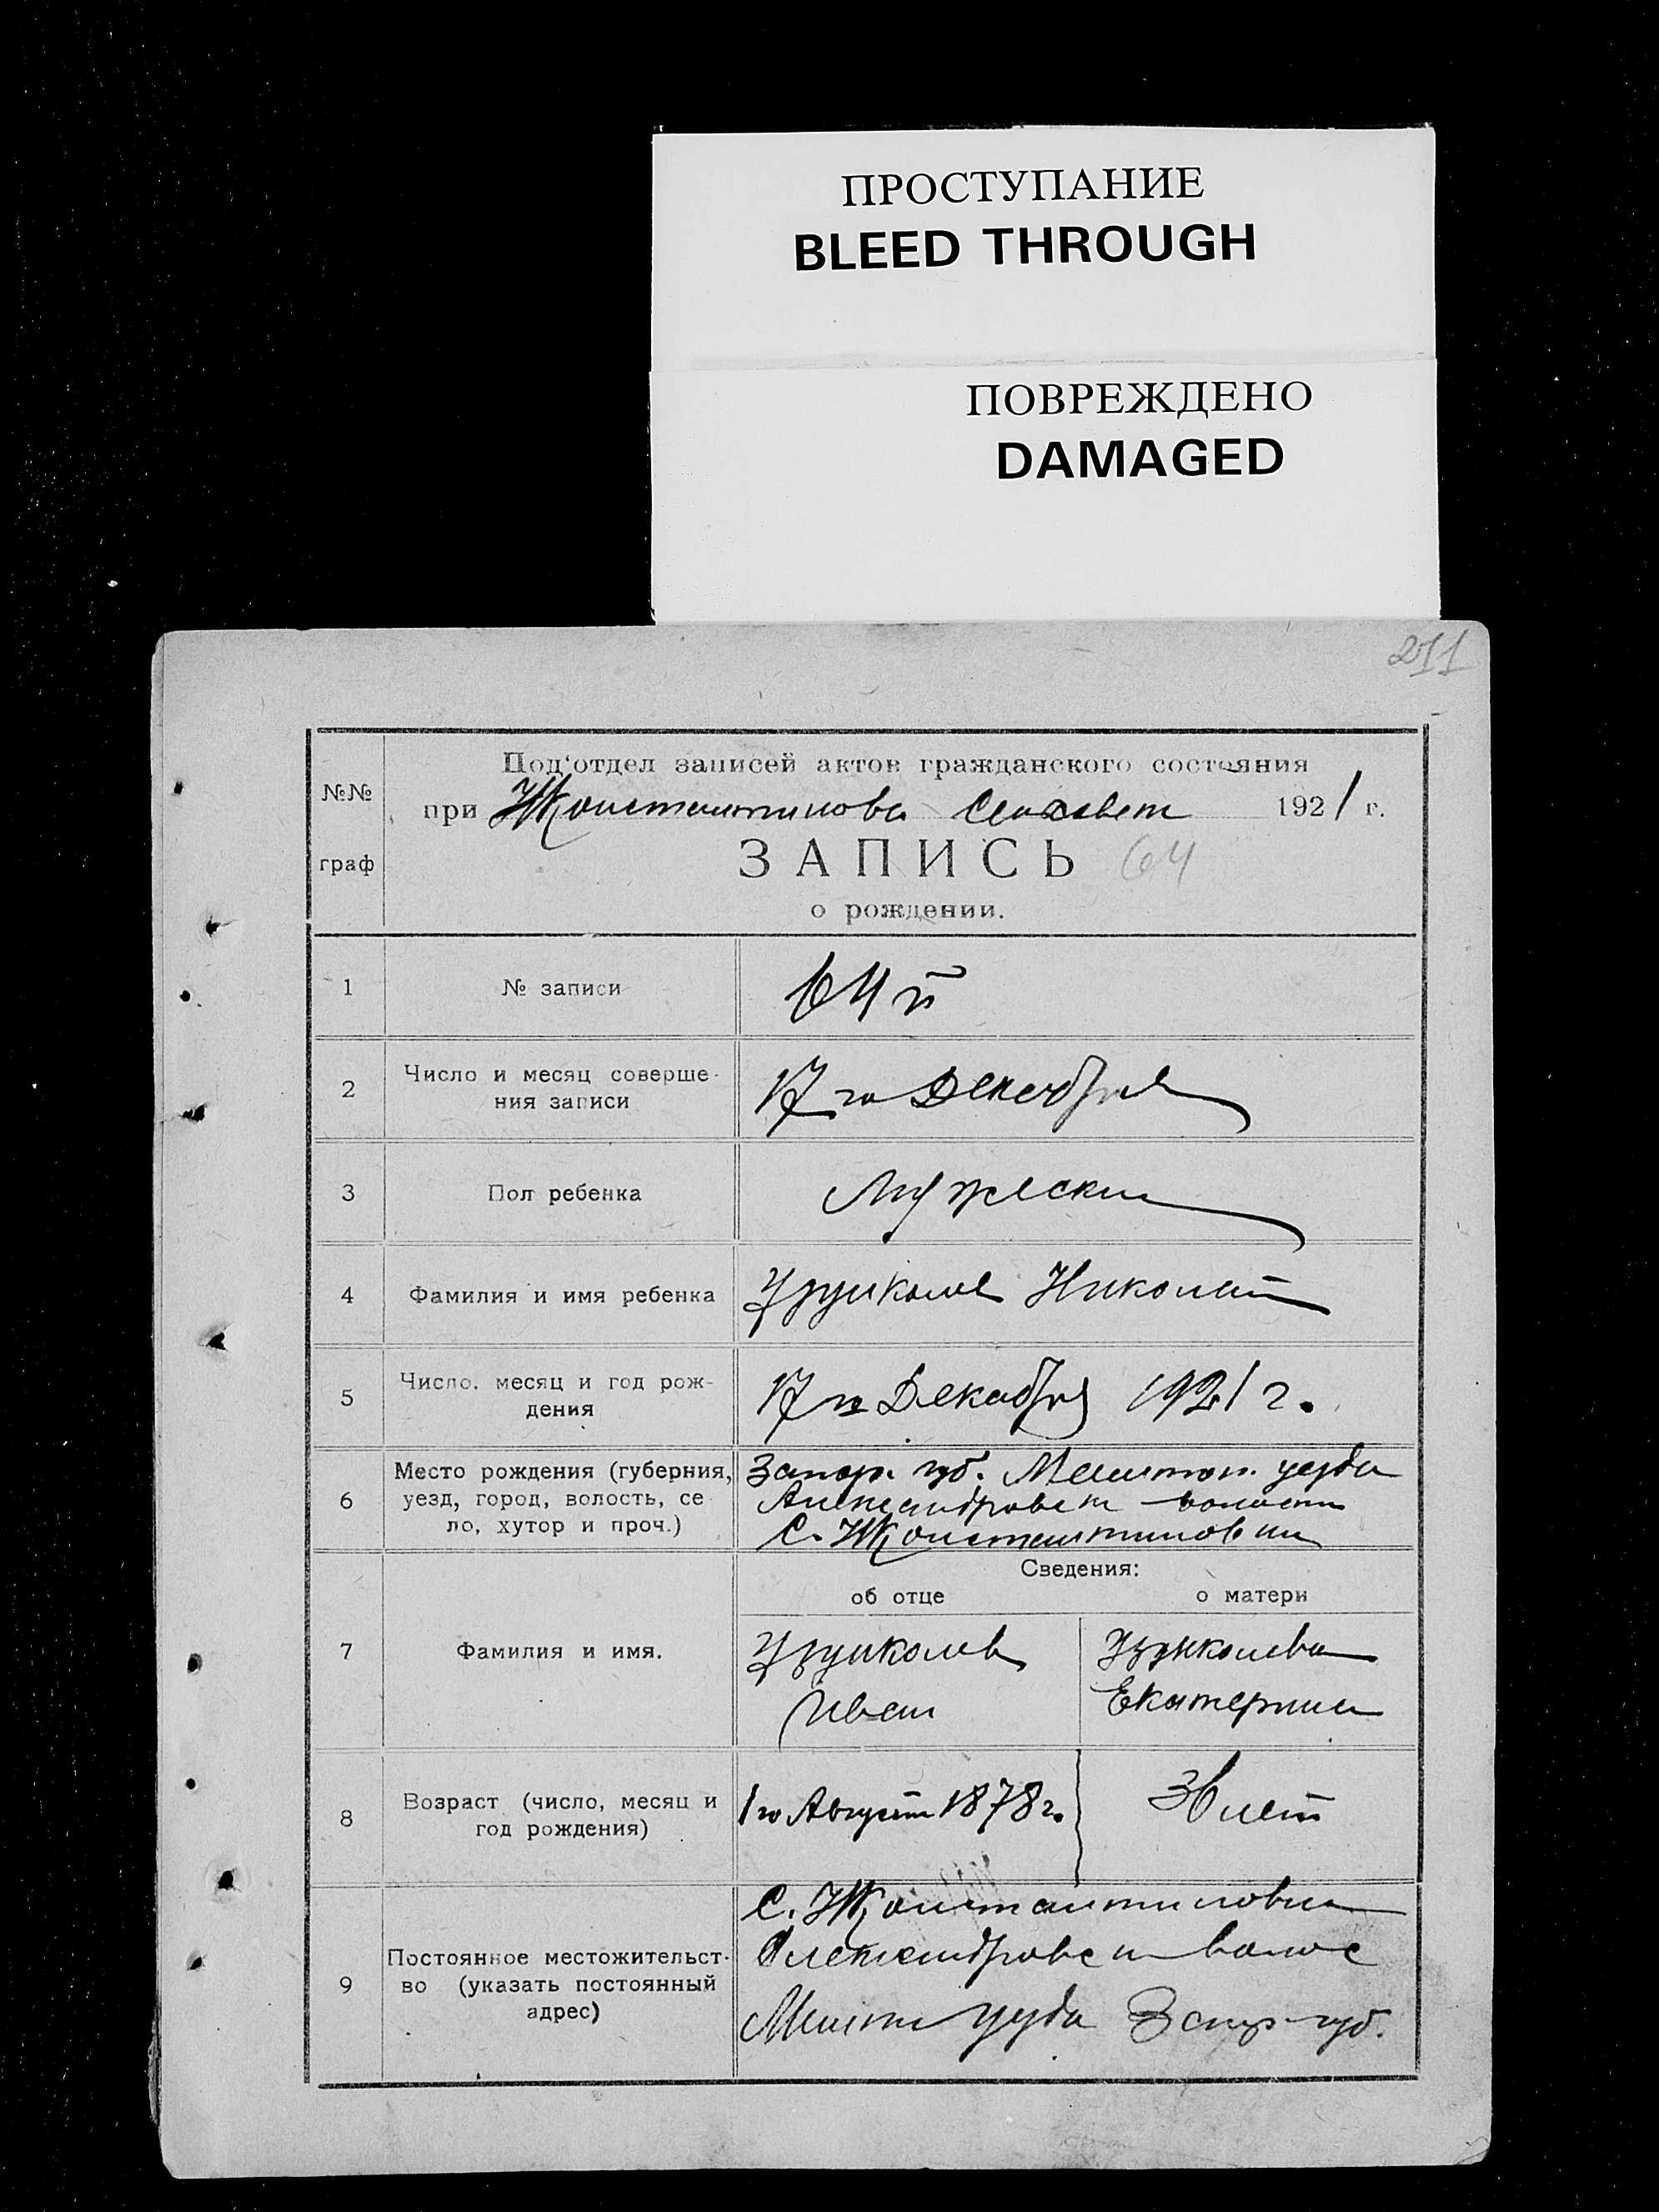 ПРОСТУПАНИЕ
BLEED THROUGH
ПОВРЕЖДЕНО
DAMAGED
211
№№ граф
Под'отдел записей актов гражданского состояния
при Константинова 1921 г.
ЗАПИСЬ 64
о рождении.
1 № записи 64 й
2 Число и месяц соверше-
ния записи 17 го Декабря
3 Пол ребенка Мужески
4 Фамилия и имя ребенка Николай
5 Число, месяц и год рож-
дения 17 го Декабря 1921 г.
6 Место рождения (губерния,
уезд, город, волость, се
ло, хутор и проч.)
Запор. губ. Мелитоп. уезда
Александровск волости
С. Константиновки
Сведения:
об отце о матери
7 Фамилия и имя.
Иван Екатерина
8 Возраст (число, месяц и
год рождения) 1 го Август 1878 г. 36 лет
9 Постоянное местожительст-
во (указать постоянный
адрес)
С. Константиновка
Александровск волос
Мелит уезда Запор губ.